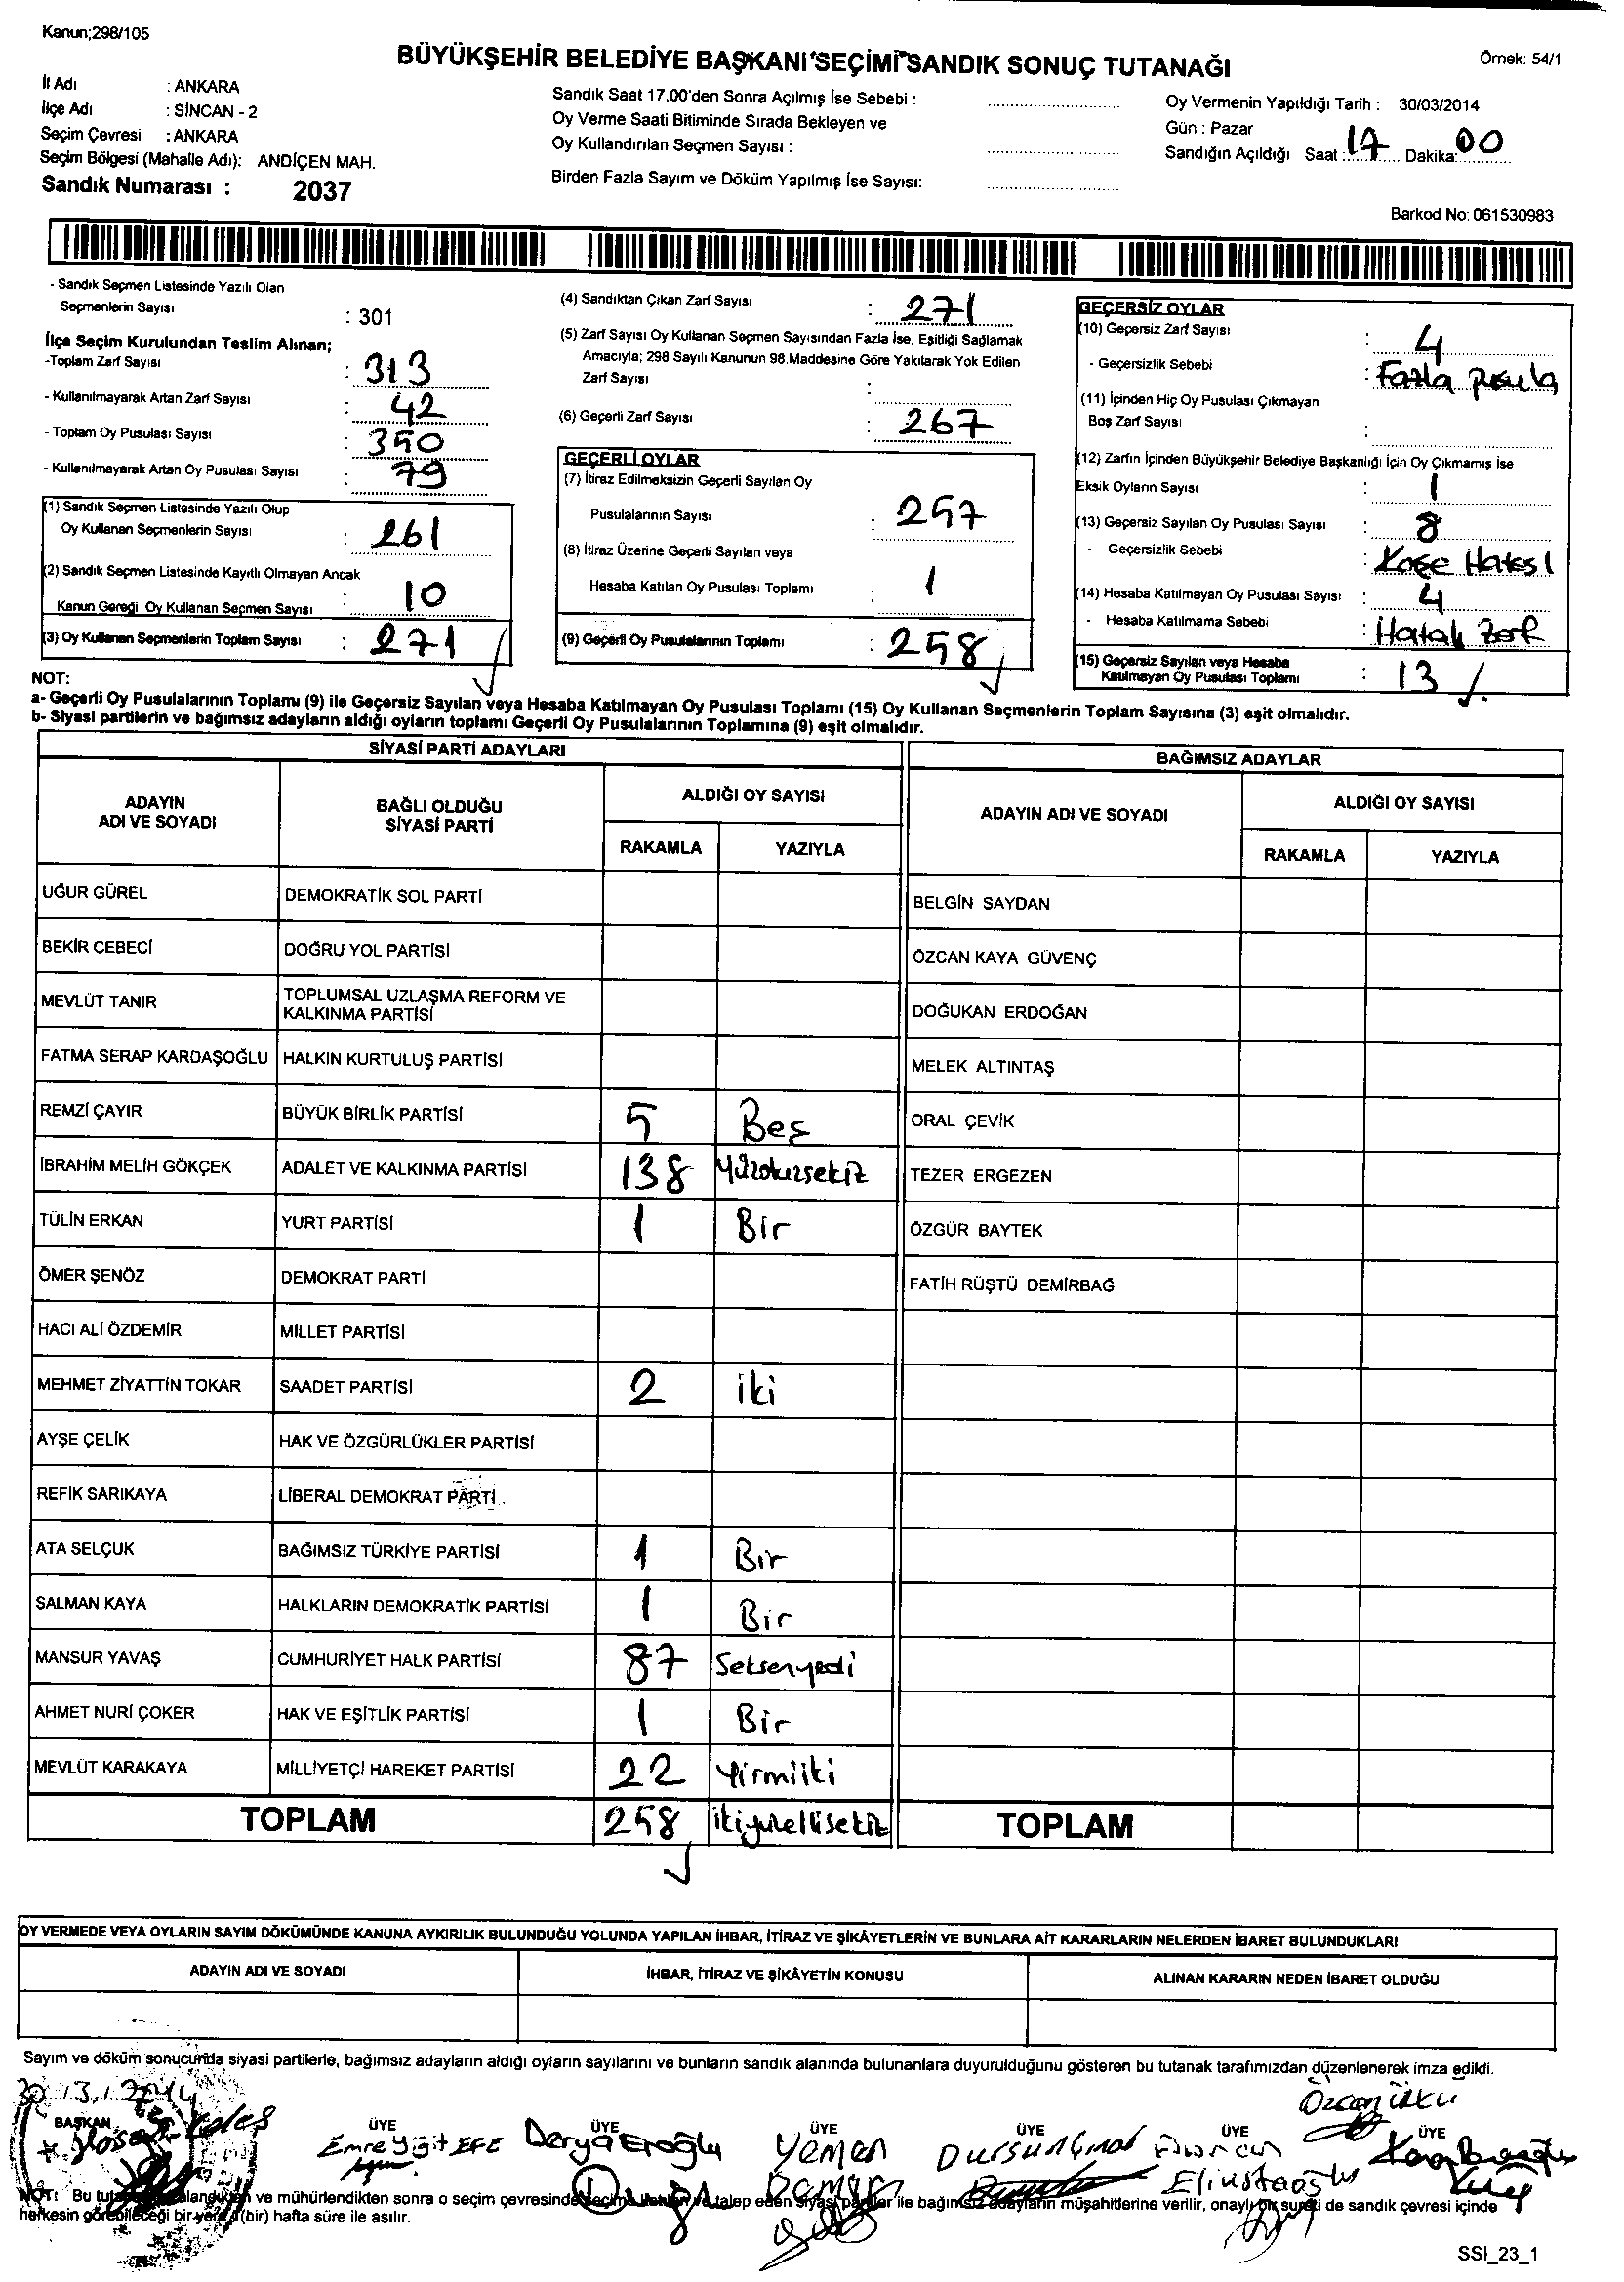 Kanun;298/105
BÜYÜKŞEHİR BELEDİYE BAŞKANI SEÇİMİ SANDIK SONUÇ TUTANAĞI
Örnek: 54/1
İl Adı : ANKARA
İlçe Adı : SİNCAN - 2
Seçim Çevresi : ANKARA
Seçim Bölgesi (Mahalle Adı): ANDİÇEN MAH.
Sandık Numarası : 2037
Sandık Saat 17.00'den Sonra Açılmış İse Sebebi :
Oy Verme Saati Bitiminde Sırada Bekleyen ve
Oy Kullandırılan Seçmen Sayısı :
Birden Fazla Sayım ve Döküm Yapılmış İse Sayısı:
Oy Vermenin Yapıldığı Tarih : 30/03/2014
Gün : Pazar
Sandığın Açıldığı Saat : 17 Dakika: 00
Barkod No: 061530983
- Sandık Seçmen Listesinde Yazılı Olan
Seçmenlerin Sayısı : 301
İlçe Seçim Kurulundan Teslim Alınan;
-Toplam Zarf Sayısı : 313
- Kullanılmayarak Artan Zarf Sayısı : 42
- Toplam Oy Pusulası Sayısı : 350
- Kullanılmayarak Artan Oy Pusulası Sayısı : 79
(1) Sandık Seçmen Listesinde Yazılı Olup
Oy Kullanan Seçmenlerin Sayısı : 261
(2) Sandık Seçmen Listesinde Kayıtlı Olmayan Ancak
Kanun Gereği Oy Kullanan Seçmen Sayısı : 10
(3) Oy Kullanan Seçmenlerin Toplam Sayısı : 271
(4) Sandıktan Çıkan Zarf Sayısı : 271
(5) Zarf Sayısı Oy Kullanan Seçmen Sayısından Fazla İse, Eşitliği Sağlamak
Amacıyla; 298 Sayılı Kanunun 98.Maddesine Göre Yakılarak Yok Edilen
Zarf Sayısı :
(6) Geçerli Zarf Sayısı : 267
GEÇERLİ OYLAR
(7) İtiraz Edilmeksizin Geçerli Sayılan Oy
Pusulalarının Sayısı : 257
(8) İtiraz Üzerine Geçerli Sayılan veya
Hesaba Katılan Oy Pusulası Toplamı : 1
(9) Geçerli Oy Pusulalarının Toplamı : 258
GEÇERSİZ OYLAR
(10) Geçersiz Zarf Sayısı : 4
- Geçersizlik Sebebi : Fazla pusula
(11) İçinden Hiç Oy Pusulası Çıkmayan
Boş Zarf Sayısı :
(12) Zarfın İçinden Büyükşehir Belediye Başkanlığı İçin Oy Çıkmamış İse
Eksik Oyların Sayısı : 1
(13) Geçersiz Sayılan Oy Pusulası Sayısı : 8
- Geçersizlik Sebebi : Kaşe Hatası
(14) Hesaba Katılmayan Oy Pusulası Sayısı : 4
- Hesaba Katılmama Sebebi : Hatalı Zarf
(15) Geçersiz Sayılan veya Hesaba
Katılmayan Oy Pusulası Toplamı : 13
NOT:
a- Geçerli Oy Pusulalarının Toplamı (9) ile Geçersiz Sayılan veya Hesaba Katılmayan Oy Pusulası Toplamı (15) Oy Kullanan Seçmenlerin Toplam Sayısına (3) eşit olmalıdır.
b- Siyasi partilerin ve bağımsız adayların aldığı oyların toplamı Geçerli Oy Pusulalarının Toplamına (9) eşit olmalıdır.
SİYASİ PARTİ ADAYLARI
BAĞIMSIZ ADAYLAR
ADAYIN ADI VE SOYADI
BAĞLI OLDUĞU SİYASİ PARTİ
ALDIĞI OY SAYISI
RAKAMLA YAZIYLA
ADAYIN ADI VE SOYADI
ALDIĞI OY SAYISI
RAKAMLA YAZIYLA
UĞUR GÜREL DEMOKRATİK SOL PARTİ BELGİN SAYDAN
BEKİR CEBECİ DOĞRU YOL PARTİSİ ÖZCAN KAYA GÜVENÇ
MEVLÜT TANIR TOPLUMSAL UZLAŞMA REFORM VE KALKINMA PARTİSİ DOĞUKAN ERDOĞAN
FATMA SERAP KARDAŞOĞLU HALKIN KURTULUŞ PARTİSİ MELEK ALTINTAŞ
REMZİ ÇAYIR BÜYÜK BİRLİK PARTİSİ 5 Beş ORAL ÇEVİK
İBRAHİM MELİH GÖKÇEK ADALET VE KALKINMA PARTİSİ 138 Yüzotuzsekiz TEZER ERGEZEN
TÜLİN ERKAN YURT PARTİSİ 1 Bir ÖZGÜR BAYTEK
ÖMER ŞENÖZ DEMOKRAT PARTİ FATİH RÜŞTÜ DEMİRBAĞ
HACI ALİ ÖZDEMİR MİLLET PARTİSİ
MEHMET ZİYATTİN TOKAR SAADET PARTİSİ 2 iki
AYŞE ÇELİK HAK VE ÖZGÜRLÜKLER PARTİSİ
REFİK SARIKAYA LİBERAL DEMOKRAT PARTİ
ATA SELÇUK BAĞIMSIZ TÜRKİYE PARTİSİ 1 Bir
SALMAN KAYA HALKLARIN DEMOKRATİK PARTİSİ 1 Bir
MANSUR YAVAŞ CUMHURİYET HALK PARTİSİ 87 Seksenyedi
AHMET NURİ ÇOKER HAK VE EŞİTLİK PARTİSİ 1 Bir
MEVLÜT KARAKAYA MİLLİYETÇİ HAREKET PARTİSİ 22 Yirmiiki
TOPLAM 258 ikiyüzellisekiz TOPLAM
OY VERMEDE VEYA OYLARIN SAYIM DÖKÜMÜNDE KANUNA AYKIRILIK BULUNDUĞU YOLUNDA YAPILAN İHBAR, İTİRAZ VE ŞİKÂYETLERİN VE BUNLARA AİT KARARLARIN NELERDEN İBARET BULUNDUKLARI
ADAYIN ADI VE SOYADI İHBAR, İTİRAZ VE ŞİKÂYETİN KONUSU ALINAN KARARIN NEDEN İBARET OLDUĞU
Sayım ve döküm sonucunda siyasi partilerle, bağımsız adayların aldığı oyların sayılarını ve bunların sandık alanında bulunanlara duyurulduğunu gösteren bu tutanak tarafımızdan düzenlenerek imza edildi.
30.3.2014
BAŞKAN ÜYE ÜYE ÜYE ÜYE ÜYE ÜYE
Emre Yiğit EFE Derya Eroğlu Yemen Dursun
NOT: Bu ve mühürlendikten sonra o seçim çevresinde talep eden siyasi partiler ile bağımsız adayların müşahitlerine verilir, onaylı bir sureti de sandık çevresi içinde
herkesin görebileceği bir yere (bir) hafta süre ile asılır.
SSI_23_1